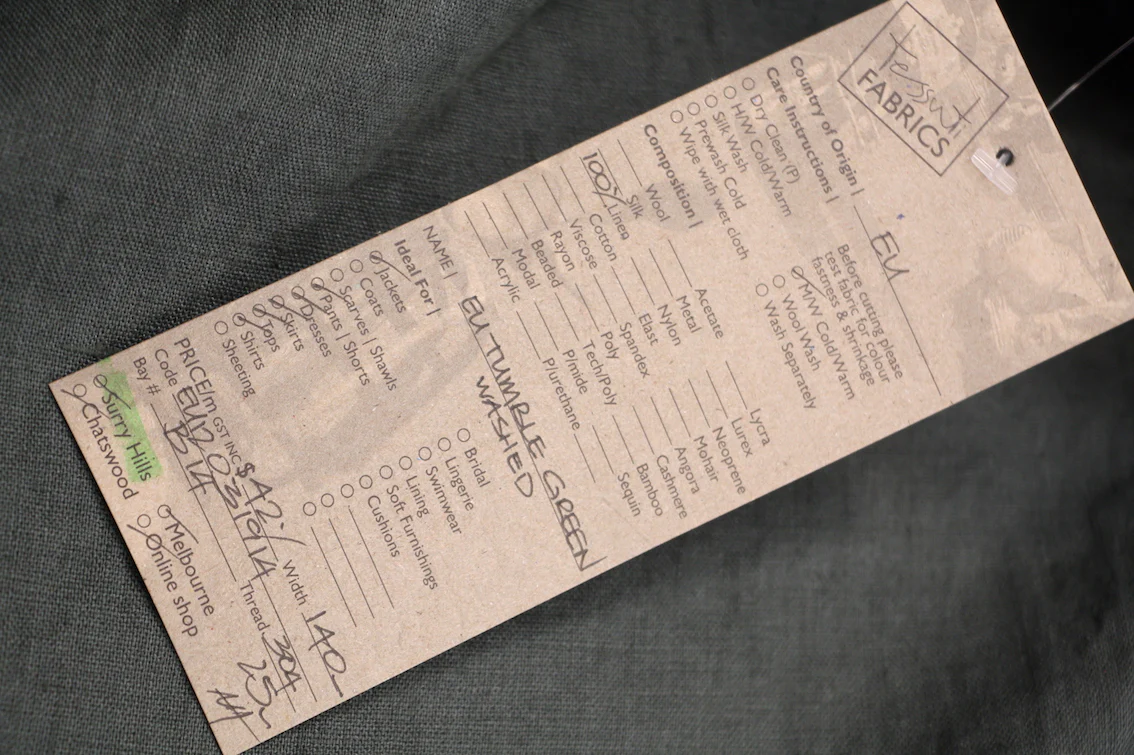 tessuti
FABRICS
Country of Origin | EU
Care Instructions |
Dry Clean (P)
H/W Cold/Warm
Silk Wash
Prewash Cold
Wipe with wet cloth
Before cutting please
test fabric for colour
fastness & shrinkage
M/W Cold/Warm
Wool Wash
Wash Separately
Composition |
Wool
Silk
100% Linen
Cotton
Viscose
Rayon
Beaded
Modal
Acrylic
Acetate
Metal
Nylon
Elast
Spandex
Poly
Tech/Poly
P/mide
P/urethane
Lycra
Lurex
Neoprene
Mohair
Angora
Cashmere
Bamboo
Sequin
NAME | EU TUMBLE GREEN
WASHED
Ideal For |
Jackets
Coats
Scarves | Shawls
Pants | Shorts
Dresses
Skirts
Tops
Shirts
Sheeting
Bridal
Lingerie
Swimwear
Lining
Soft Furnishings
Cushions
PRICE/m GST INC $42./ Width 140
Code Thread 304
Bay # B14
Surry Hills Melbourne 25m
Chatswood Online shop